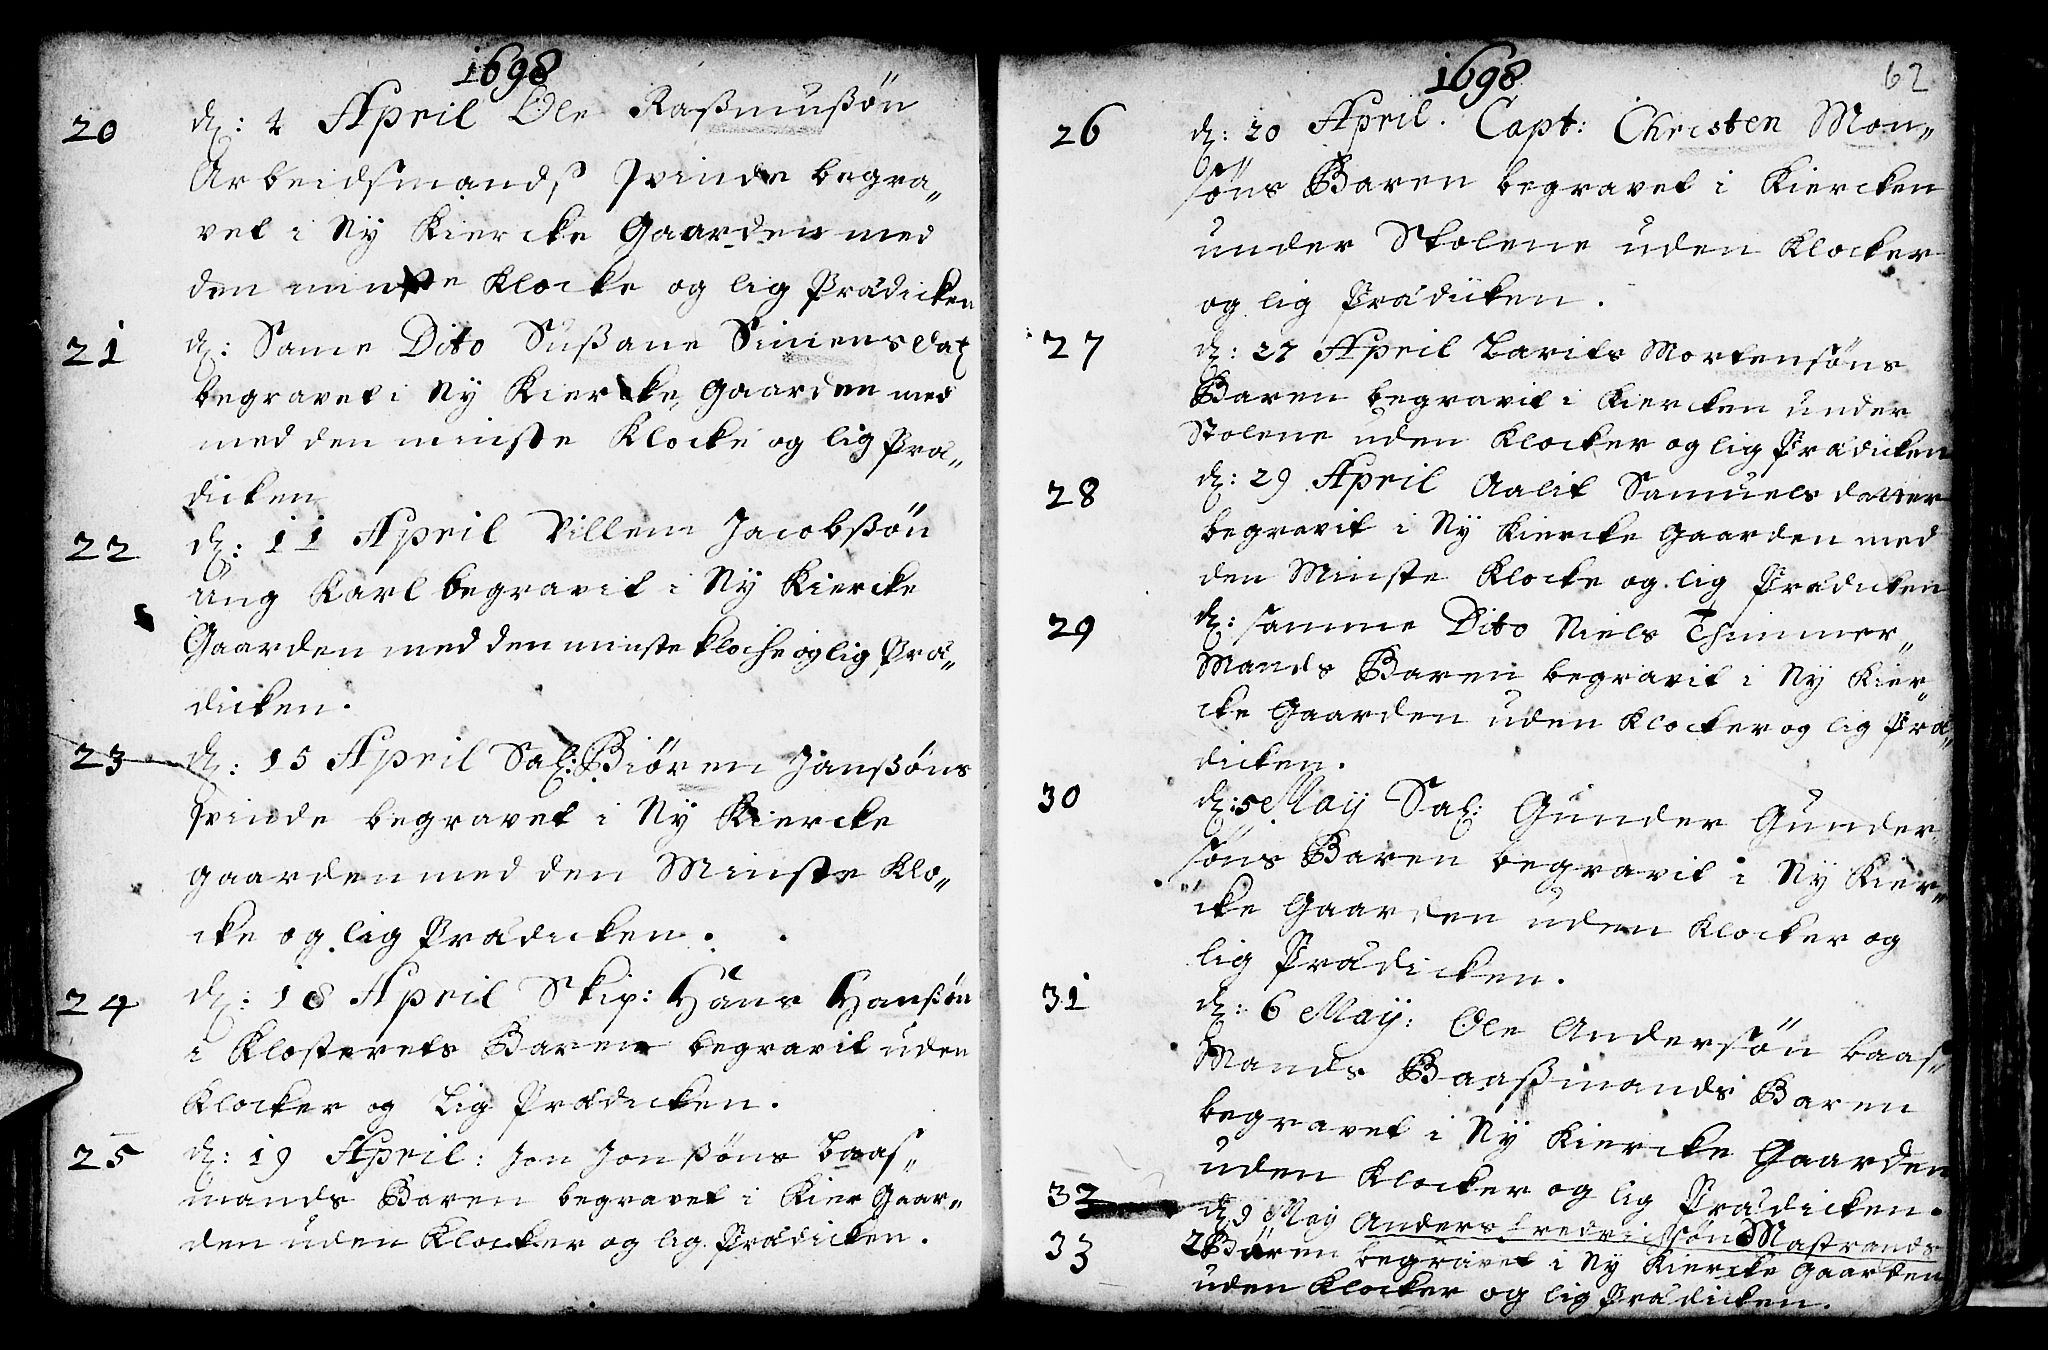 1698
20 dn: 4 April Ole Raßmußøn
Arbeidsmands qvinde begra„
vet i Ny Kiercke Gaarden med
den minste Klocke og lig Prædicken
21 dn: Same Dito Sußane Simensdat
begravet i Ny Kiercke Gaarden med
med den minste Klocke og lig Præ„
dicken
22 dn: 11 April Villem Jacobßøn
ung Karl begravit i Ny Kiercke
Gaarden med den minste klocke og lig Præ„
dicken.
23 dn: 15 April Sal: Biören Janßøns
qvinde begravet i Ny Kiercke
gaarden med den Minste Klo„
cke og lig Prædicken.
24 dn: 18 April Skip: Hans Hanßøn
i Klosterets Baren begravit uden
Klocker og Lig Prædicken.
25 dn: 19 April: Jon Jonßøns Baas„
mands Baren begravet i Kier Gaar„
den uden Klocker og lig Prædicken.
1698
62
26 dn: 20 April. Capt: Christen Mon„
søns Baren begravet i Kiercken
under Stolene uden Klocker
og lig Prædicken.
27 dn: 27 April Larits Mortensøns
Baren begravit i Kiercken under
Stolene uden Klocker og lig Prædicken
28 dn: 29 April Aalit Samuels datter
begravit i Ny Kiercke Gaarden med
den Minste Klocke og lig Prædicken
29 dn: samme Dito Niels Thimmer„
Mands Baren begravit i Ny Kier„
cke Gaarden uden Klocker og lig Præ„
dicken.
30 dn: 5 Maij Sal: Gunder Gunder„
søns Baren begravit i Ny Kier„
cke Gaarden uden Klocker og
lig Prædicken.
31 dn: 6 Maij: Ole Andersøn baas„
Mands Baaßmands Baren
begravet i Ny Kiercke Gaarden
uden Klocker og lig Prædicken.
32 dn 9 Maij Anders Fredrichsøn Mastrands
33 2 Bören begravet i Ny Kiercke Gaarden
uden Klocker og lig Prædicken.